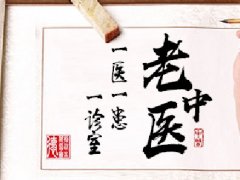 老中医
一医一患
一诊室